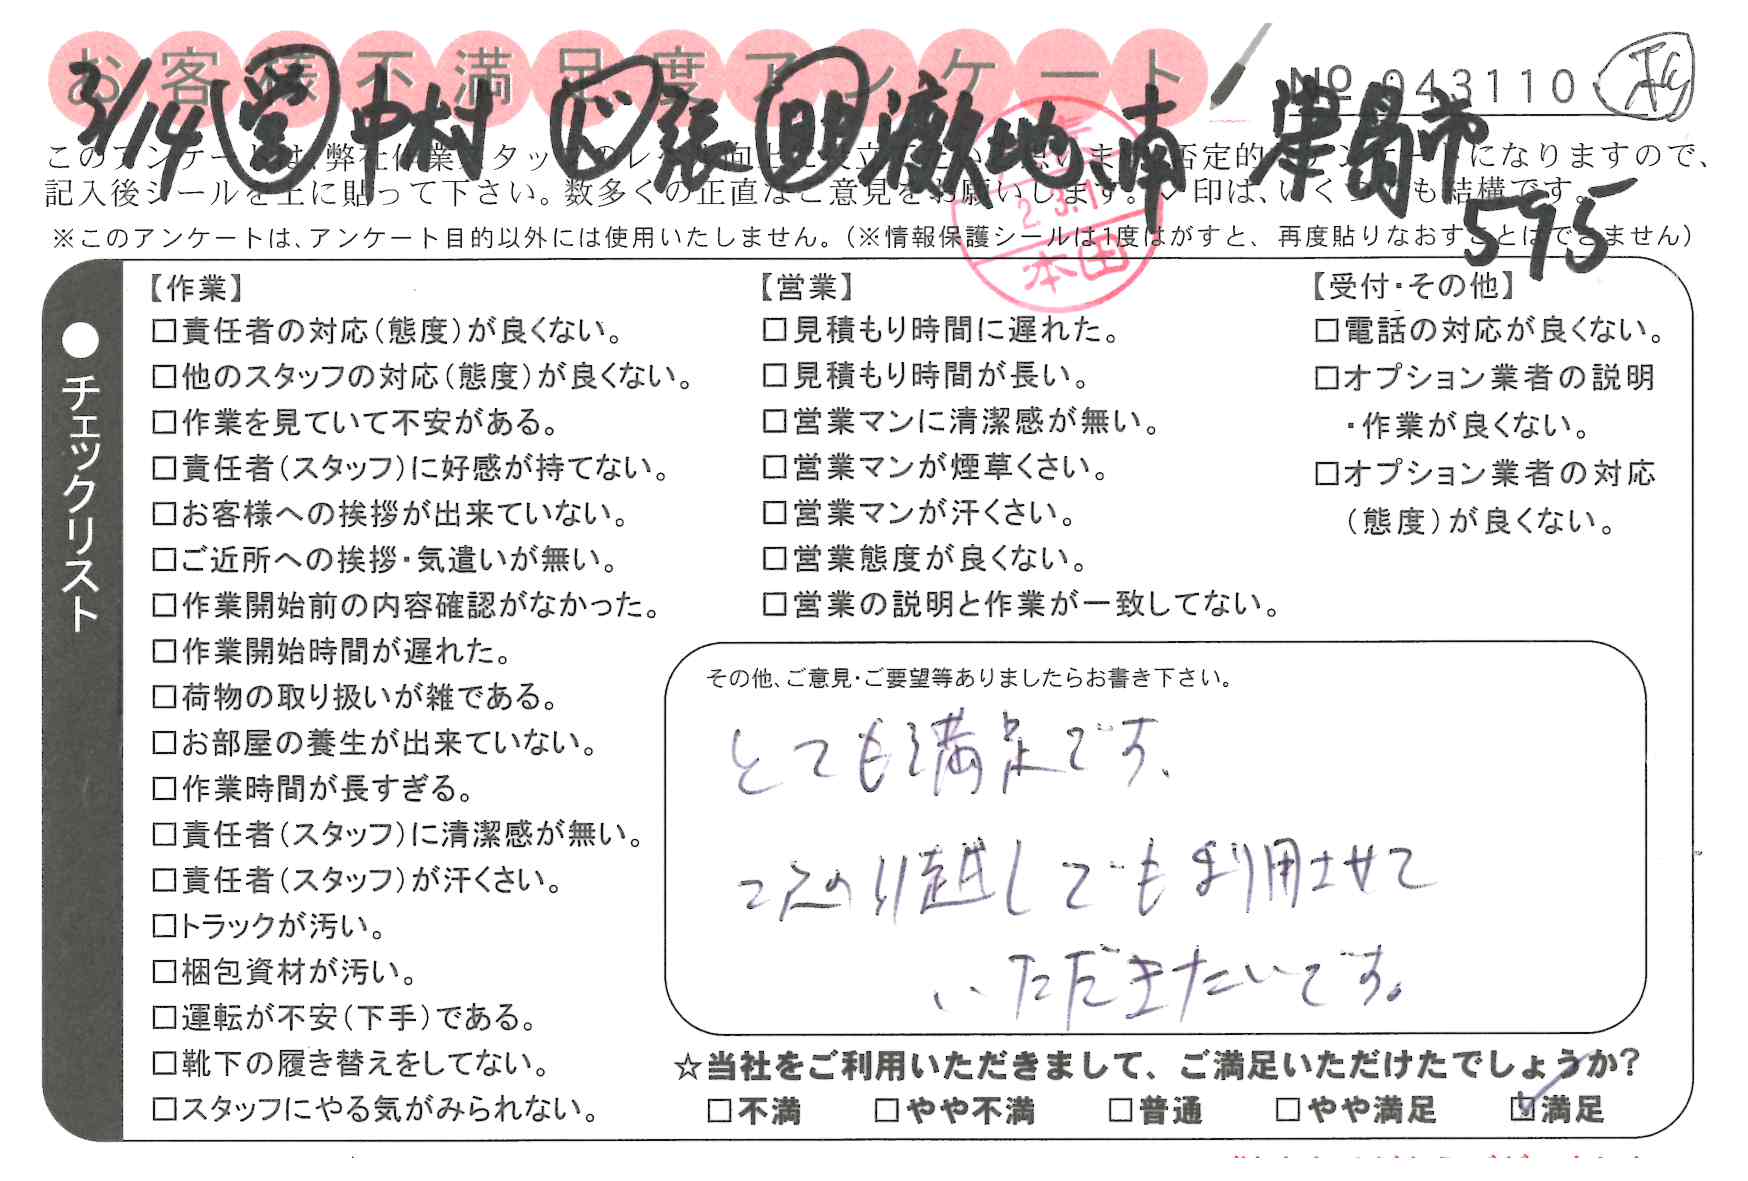 お客様不満足度アンケート
No 043110
3/14 営 中村 心 張 明 激地 南 津島市
595
このアンケートは、弊社作業スタッフのレベル向上に役立てたいと思います。否定的なアンケートになりますので、
記入後シールを上に貼って下さい。数多くの正直なご意見をお願いします。✓印は、いくつでも結構です。
※このアンケートは、アンケート目的以外には使用いたしません。（※情報保護シールは1度はがすと、再度貼りなおすことはできません）
2.3.1
本田
●チェックリスト
【作業】
□責任者の対応（態度）が良くない。
□他のスタッフの対応（態度）が良くない。
□作業を見ていて不安がある。
□責任者（スタッフ）に好感が持てない。
□お客様への挨拶が出来ていない。
□ご近所への挨拶・気遣いが無い。
□作業開始前の内容確認がなかった。
□作業開始時間が遅れた。
□荷物の取り扱いが雑である。
□お部屋の養生が出来ていない。
□作業時間が長すぎる。
□責任者（スタッフ）に清潔感が無い。
□責任者（スタッフ）が汗くさい。
□トラックが汚い。
□梱包資材が汚い。
□運転が不安（下手）である。
□靴下の履き替えをしてない。
□スタッフにやる気がみられない。
【営業】
□見積もり時間に遅れた。
□見積もり時間が長い。
□営業マンに清潔感が無い。
□営業マンが煙草くさい。
□営業マンが汗くさい。
□営業態度が良くない。
□営業の説明と作業が一致してない。
【受付・その他】
□電話の対応が良くない。
□オプション業者の説明
・作業が良くない。
□オプション業者の対応
（態度）が良くない。
その他、ご意見・ご要望等ありましたらお書き下さい。
とても満足です、
次の引越しでもまた利用させて
いただきたいです。
☆当社をご利用いただきまして、ご満足いただけたでしょうか?
□不満 □やや不満 □普通 □やや満足 ☑満足